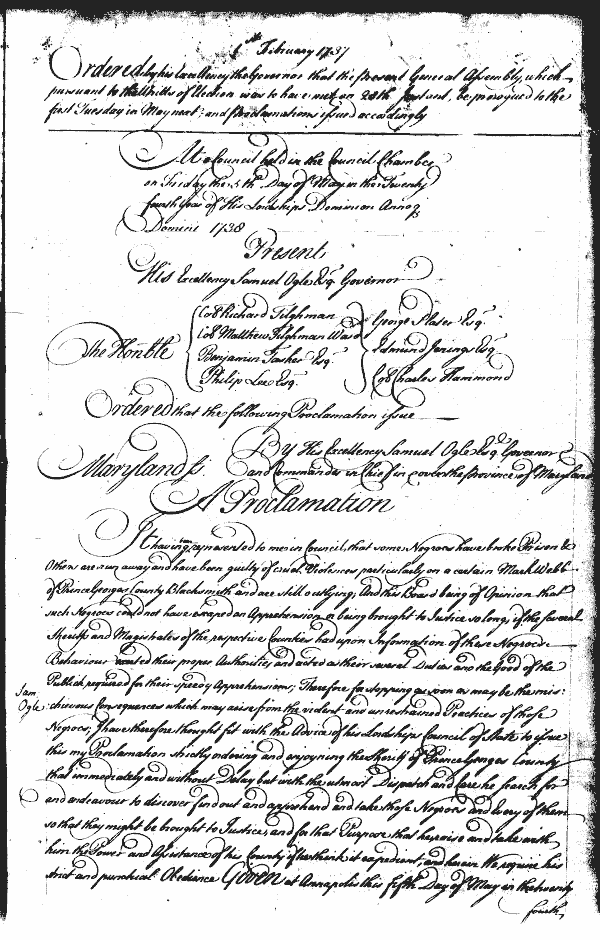 1st February 1737
Ordered by his Excellency the Governor that the Present General Assembly, which
pursuant to the Writts of Election was to have met on 28th Instant, be prorogued to the
first Tuesday in May next; and Proclamations issued accordingly
At a Council held in the Council Chamber
on Friday the 5th Day of May in the Twenty
fourth Year of His Lordships Dominion Annoq
Domini 1738
Present
His Excellency Samuel Ogle Esq Governor
The Honble
Col Richard Tilghman
Col Matthew Tilghman Ward
Benjamin Tasker Esq
Philip Lee Esq
George Plater Esq
Edmund Jenings Esq
Col Charles Hammond
Ordered that the following Proclamation issue
Maryland ss.
By His Excellency Samuel Ogle Esq Governor
and Commander in Chief in & over the Province of Maryland
A Proclamation
It having been represented to me in Council, that some Negroes have broke Prison &
Others are run away and have been guilty of cruel Violences particularly on a certain Mark Webb
of Prince Georges County Blacksmith and are still outlying; And this Board being of Opinion that
such Negroes could not have escaped an Apprehension or being brought to Justice so long, if the several
Sheriffs and Magistrates of the respective Counties had upon Information of these Negroes
Behaviour exerted their proper Authorities, and acted as their several Duties and the Good of the
Publick required for their speedy Apprehensions; Therefore for stopping as soon as may be the mis:
Sam
Ogle
chievous Consequences which may arise from the violent and unrestrained Practices of those
Negroes, I have therefore thought fit with the Advice of his Lordships Council of State to issue
this my Proclamation strictly ordering and enjoyning the Sheriff of Prince Georges County
that immediately and without Delay but with the utmost Dispatch and Care he search for
and endeavour to discover find out and apprehend and take those Negroes and Every of them
so that they might be brought to Justice, and for that Purpose that he raise and take with
him the Power and Assistance of the County if he think it expedient, and herein We require his
strict and punctual Obedience Given at Annapolis this fifth Day of May in the twenty
fourth